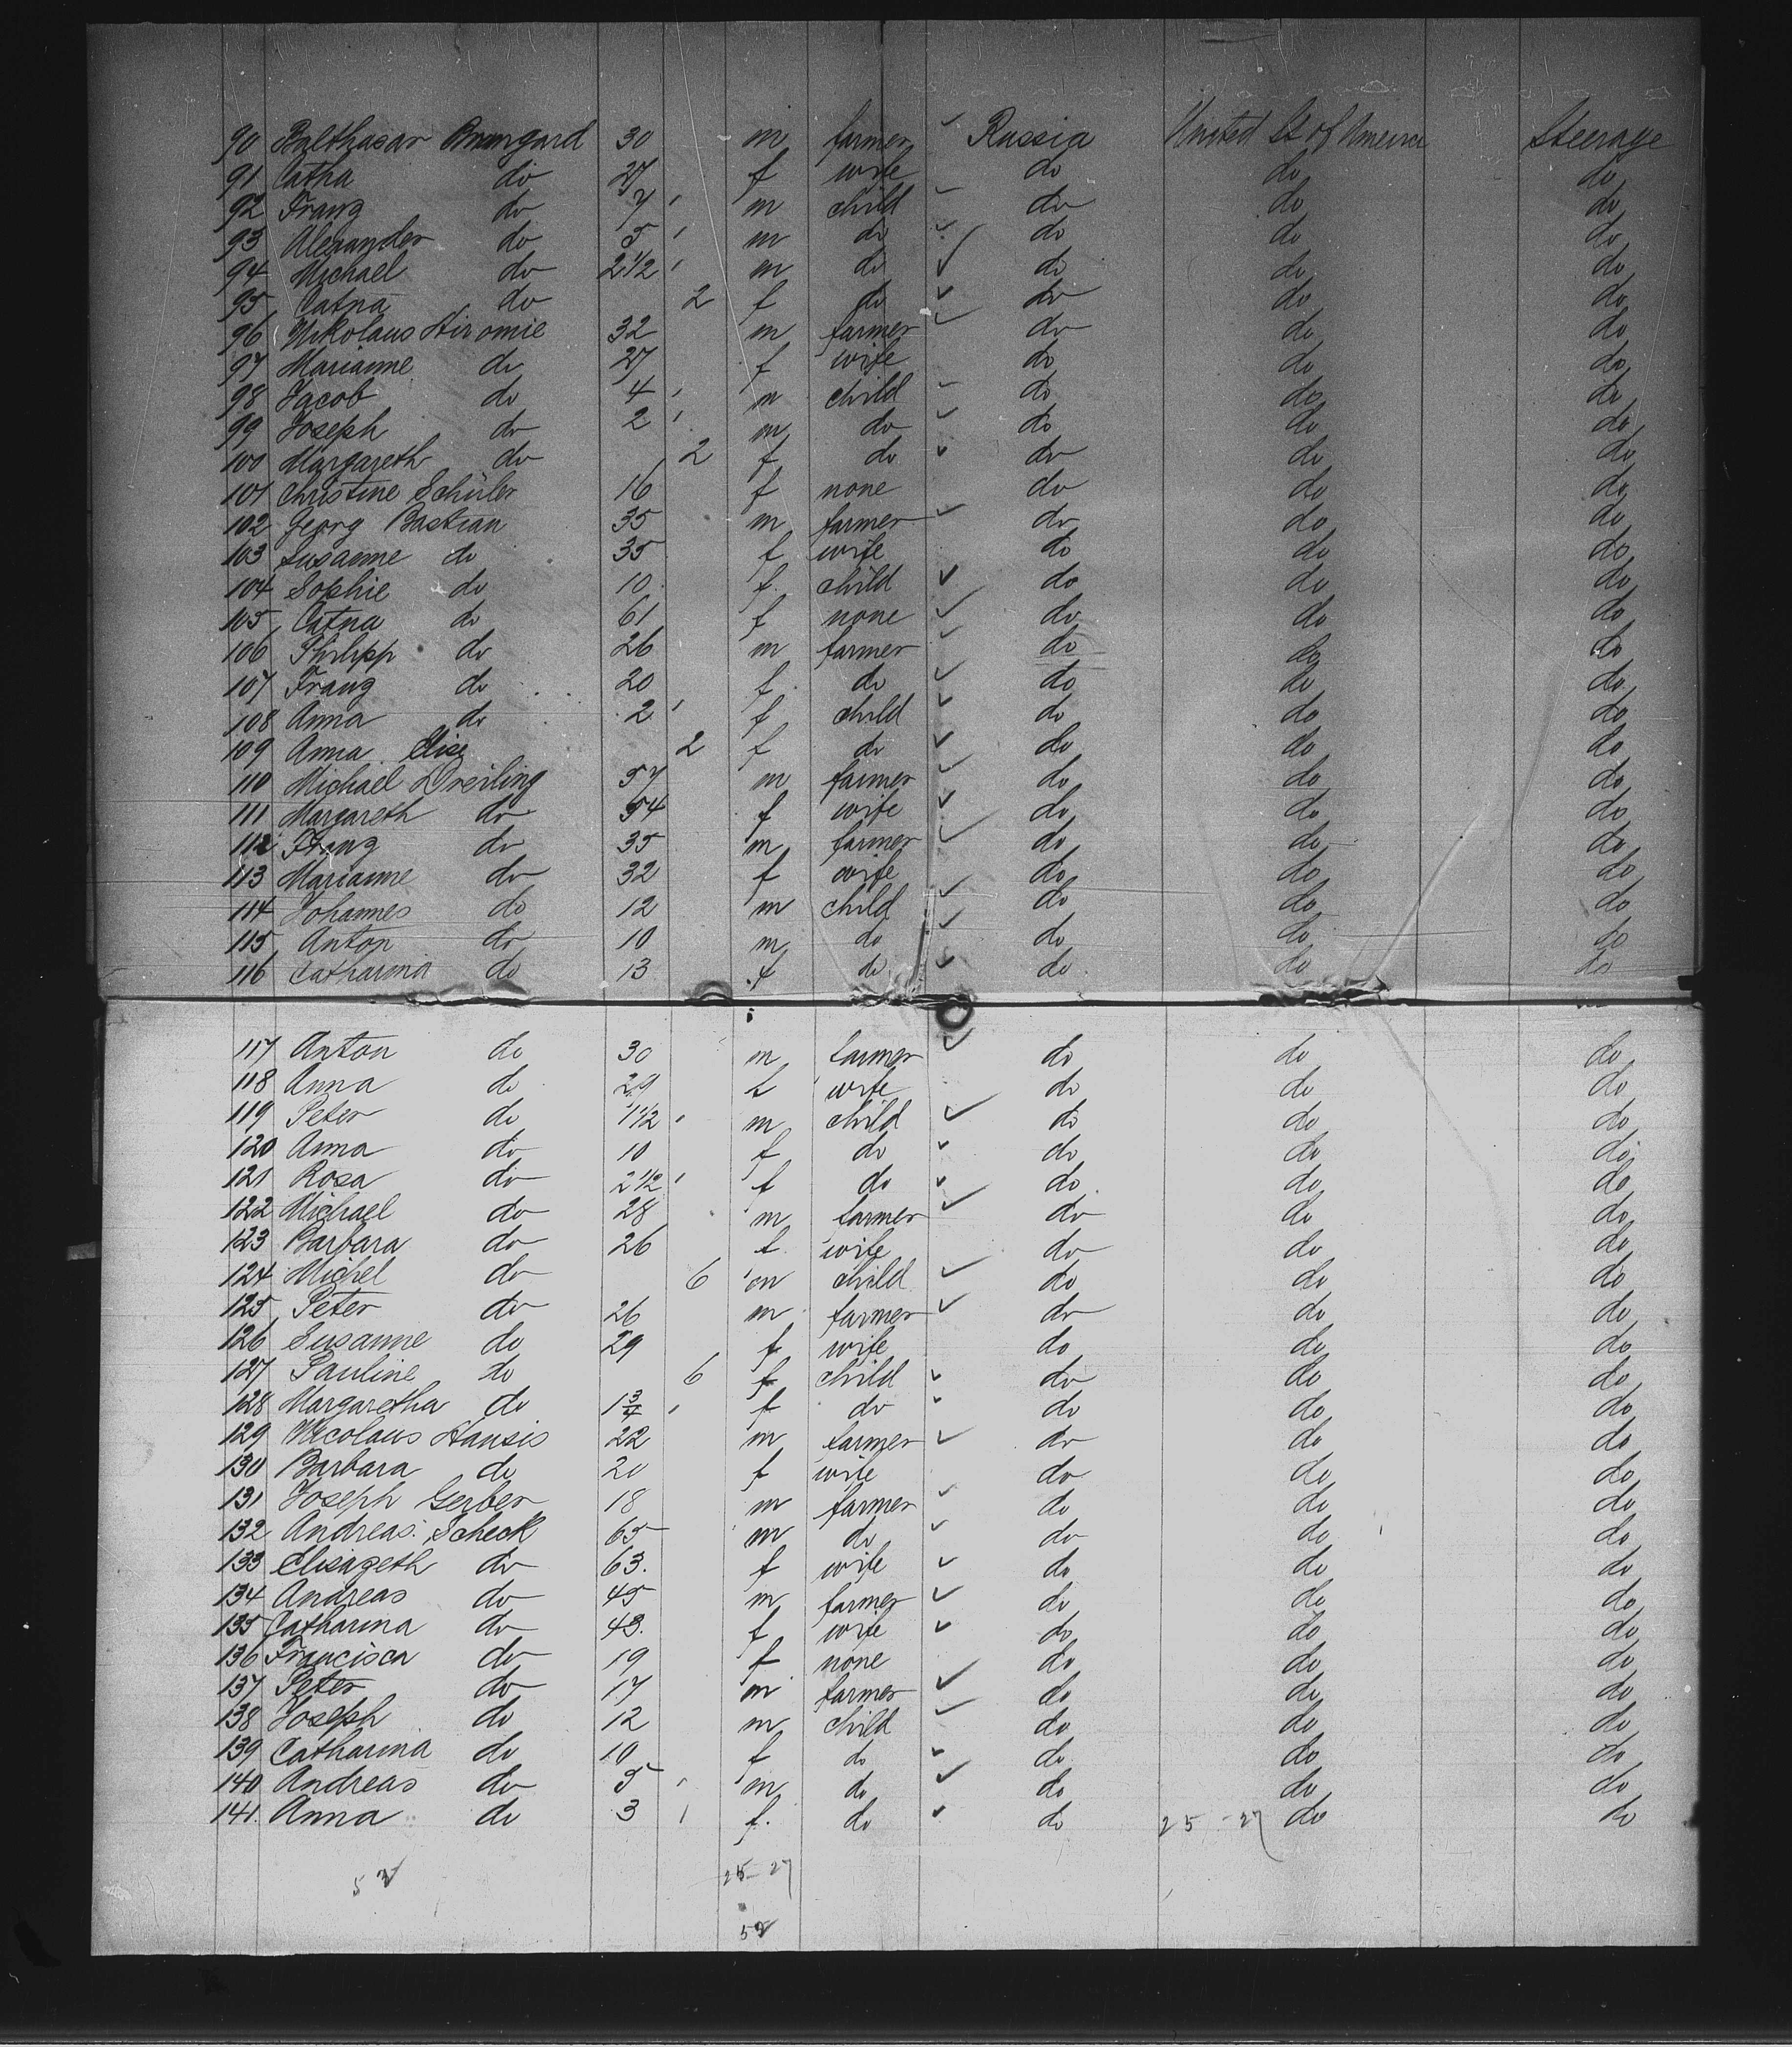 90 Balthasar Brungard 30 m farmer Russia United St of America Steerage
91 Catha do 27 f wife do do do
92 Franz do 7 m child do do do
93 Alexander do 5 m do do do do
94 Michael do 2 1/2 m do do do do
95 Catna do 2 f do do do do
96 Nikolaus Hiromie 32 m farmer do do do
97 Marianne do 27 f wife do do do
98 Jacob do 4 m child do do do
99 Joseph do 2 m do do do do
100 Margareth do 2 f do do do do
101 Christine Schüler 16 f none do do do
102 Georg Bastian 35 m farmer do do do
103 Susanne do 35 f wife do do do
104 Sophie do 10 f child do do do
105 Catna do 61 f none do do do
106 Philipp do 26 m farmer do do do
107 Franz do 20 f do do do do
108 Anna do 2 f child do do do
109 Anna Elise 2 f do do do do
110 Michael Dreiling 57 m farmer do do do
111 Margareth do 54 f wife do do do
112 Franz do 35 m farmer do do do
113 Marianne do 32 f wife do do do
114 Johannes do 12 m child do do do
115 Anton do 10 m do do do do
116 Catharina do 13 f do do do do
117 Anton do 30 m farmer do do do
118 Anna do 29 f wife do do do
119 Peter do 1 1/2 m child do do do
120 Anna do 10 f do do do do
121 Rosa do 2 1/2 f do do do do
122 Michael do 28 m farmer do do do
123 Barbara do 26 f wife do do do
124 Michel do 6 m child do do do
125 Peter do 26 m farmer do do do
126 Susanne do 29 f wife do do do
127 Pauline do 6 f child do do do
128 Margaretha do 1 3/4 f do do do do
129 Nicolaus Hansis 22 m farmer do do do
130 Barbara do 20 f wife do do do
131 Joseph Gerber 18 m farmer do do do
132 Andreas Scheck 65 m do do do do
133 Elisazeth do 63. f wife do do do
134 Andreas do 45 m farmer do do do
135 Catharina do 43. f wife do do do
136 Francisca do 19 f none do do do
137 Peter do 17 m farmer do do do
138 Joseph do 12 m child do do do
139 Catharina do 10 f do do do do
140 Andreas do 5 m do do do do
141. Anna do 3 f. do do 25-27 do do
52 25-27
52